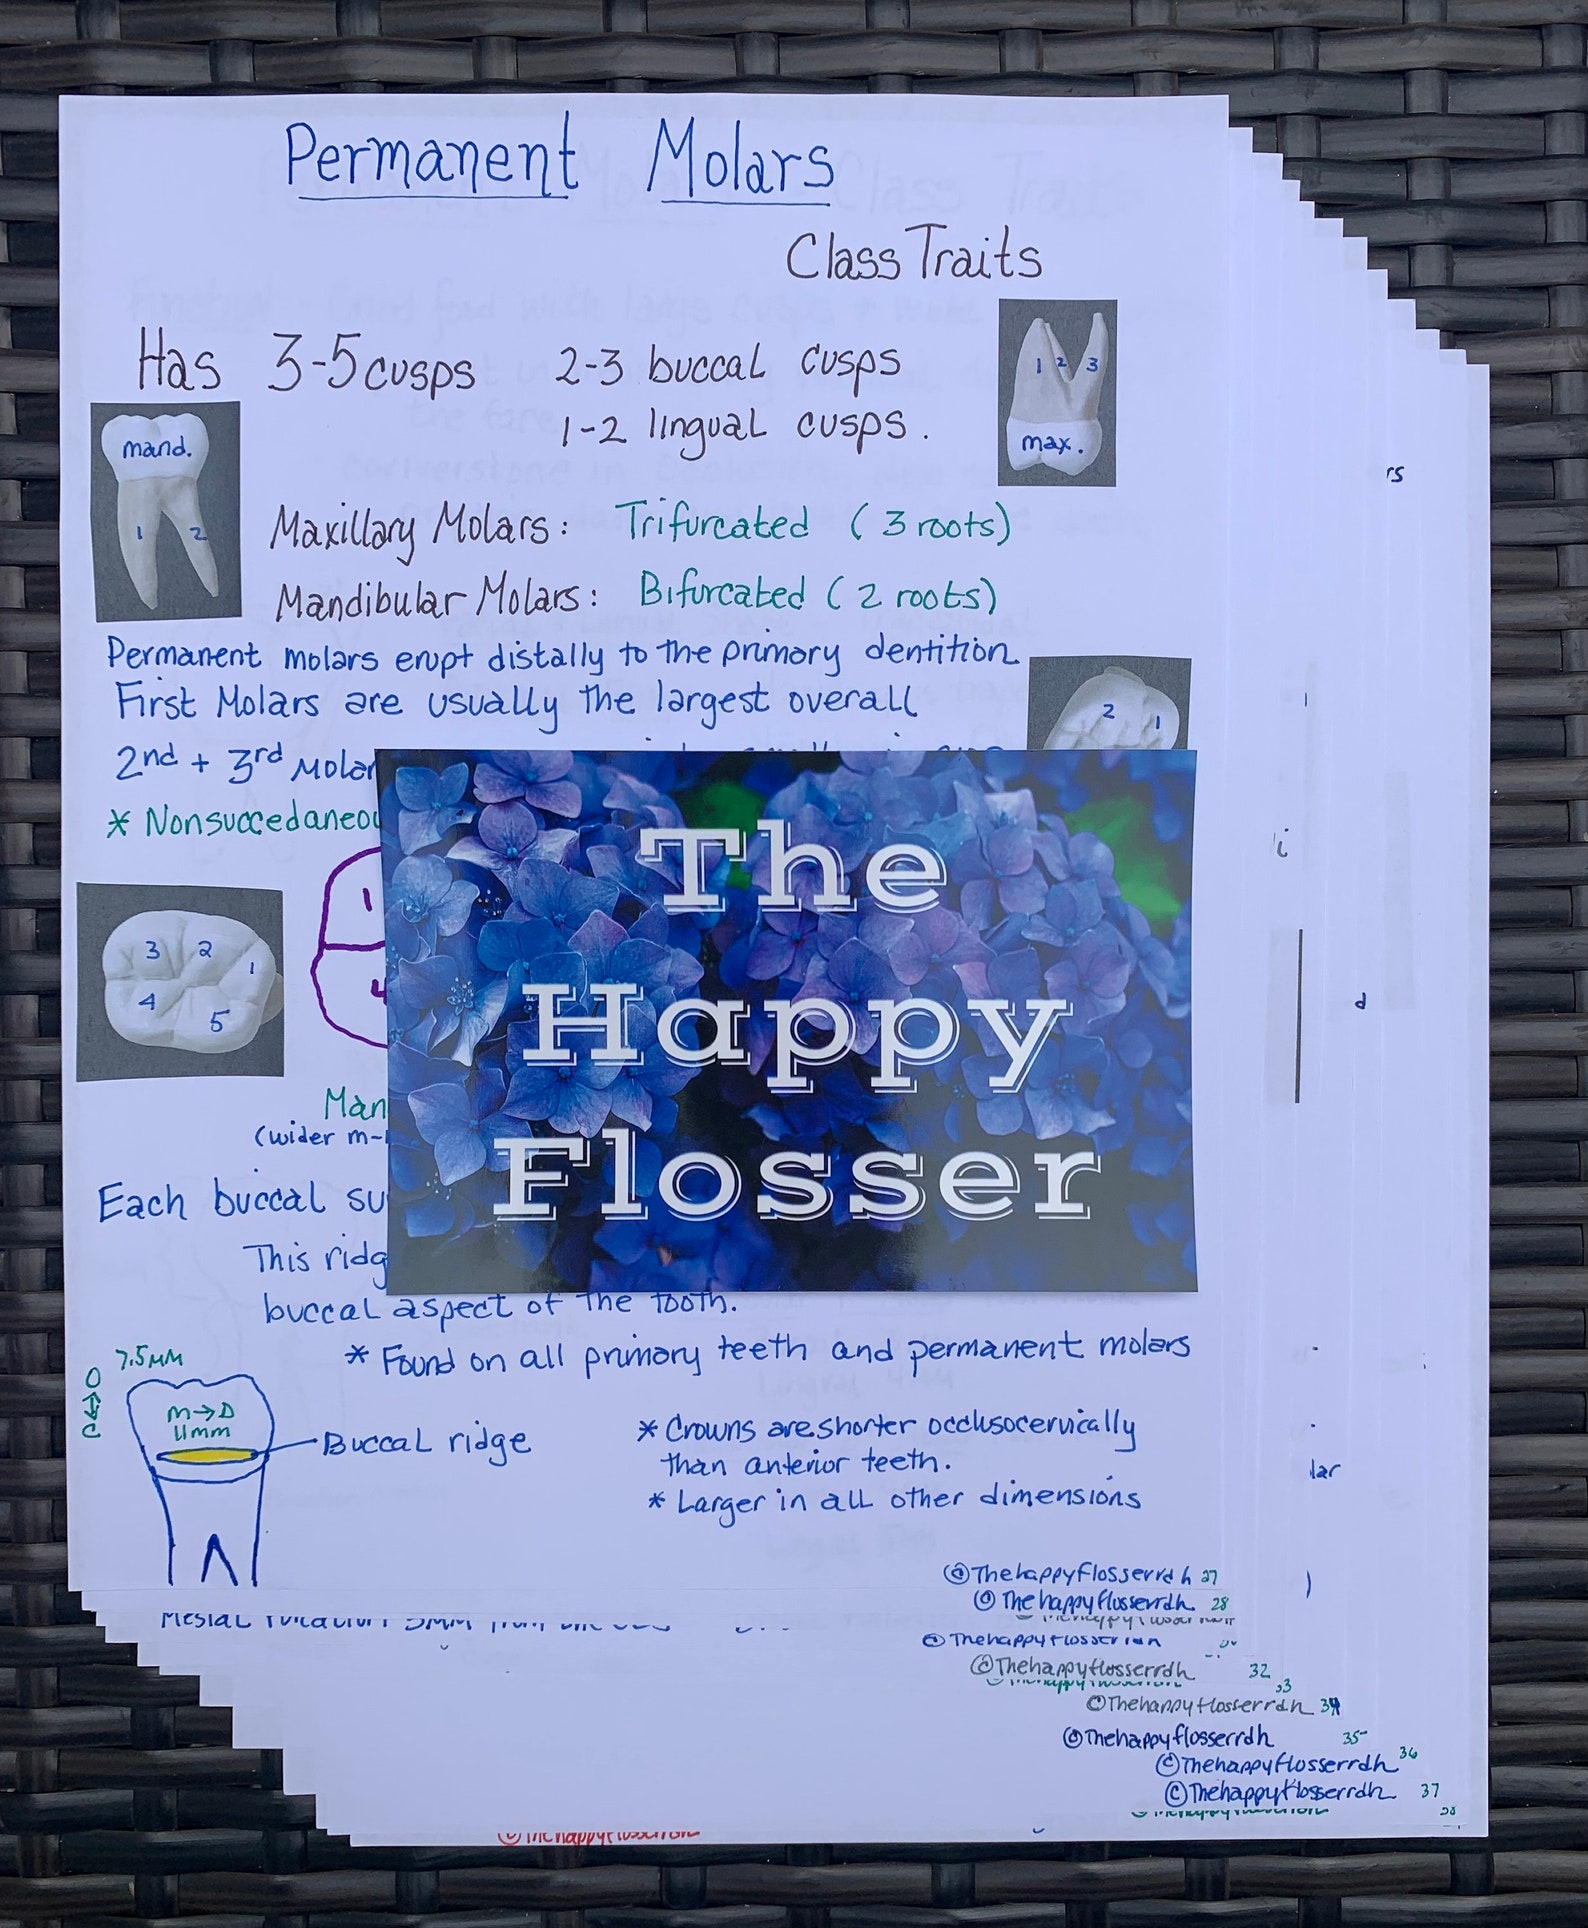 Permanent Molars
Class Traits
Has 3-5 cusps 2-3 buccal cusps
1-2 lingual cusps.
1 2 3
max.
mand.
1 2
Maxillary Molars: Trifurcated (3 roots)
Mandibular Molars: Bifurcated (2 roots)
Permanent molars erupt distally to the primary dentition
First Molars are usually the largest overall
2 1
2nd + 3rd Molar
* Nonsuccedaneou
The
Happy
Flosser
1
4
3 2 1
4 5
Man
(wider m-
Each buccal su
This ridg
buccal aspect of the tooth.
* Found on all primary teeth and permanent molars
7.5mm
O
C
M→D
11mm
Buccal ridge
* Crowns are shorter occlusocervically
than anterior teeth.
* Larger in all other dimensions
©Thehappyflosserrdh 27
© Thehappyflosserrdh 28
©Thehappyflosserrdh 32
33
©Thehappyflosserrdh 34
©Thehappyflosserrdh 35
©Thehappyflosserrdh 36
©Thehappyflosserrdh 37
rs
i
d
lar